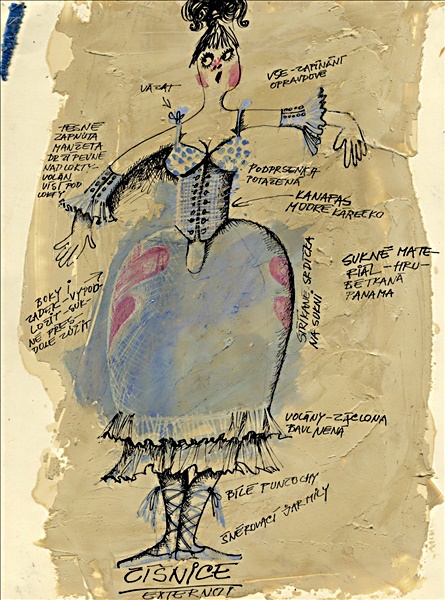 VÁZAT
VŠE-ZAPÍNÁNÍ
OPRAVDOVÉ
TĚSNĚ
ZAPNUTÁ
MANŽETA
DRŽÍ PEVNĚ
NAD LOKTY-
VOLÁN
VISÍ POD
LOKTY
PODPRSENKA
POTAŽENÁ
KANAFAS
MODRÉ KAREČKO
SUKNĚ MATE-
RIÁL-HRU-
BĚ TKANÁ
PANAMA
STŘÍKANÉ SRDÍČKA
NA SUKNI
BOKY I
ZADEK-VYPOD-
LOŽIT-SUK-
NĚ
DOLE ZÚŽIT
VOLÁNY-ZÁCLONA
BAVLNĚNÁ
BÍLÉ PUNČOCHY
ŠNĚROVACÍ ŠKARMILY
ČÍŠNICE
EXTERNOJI